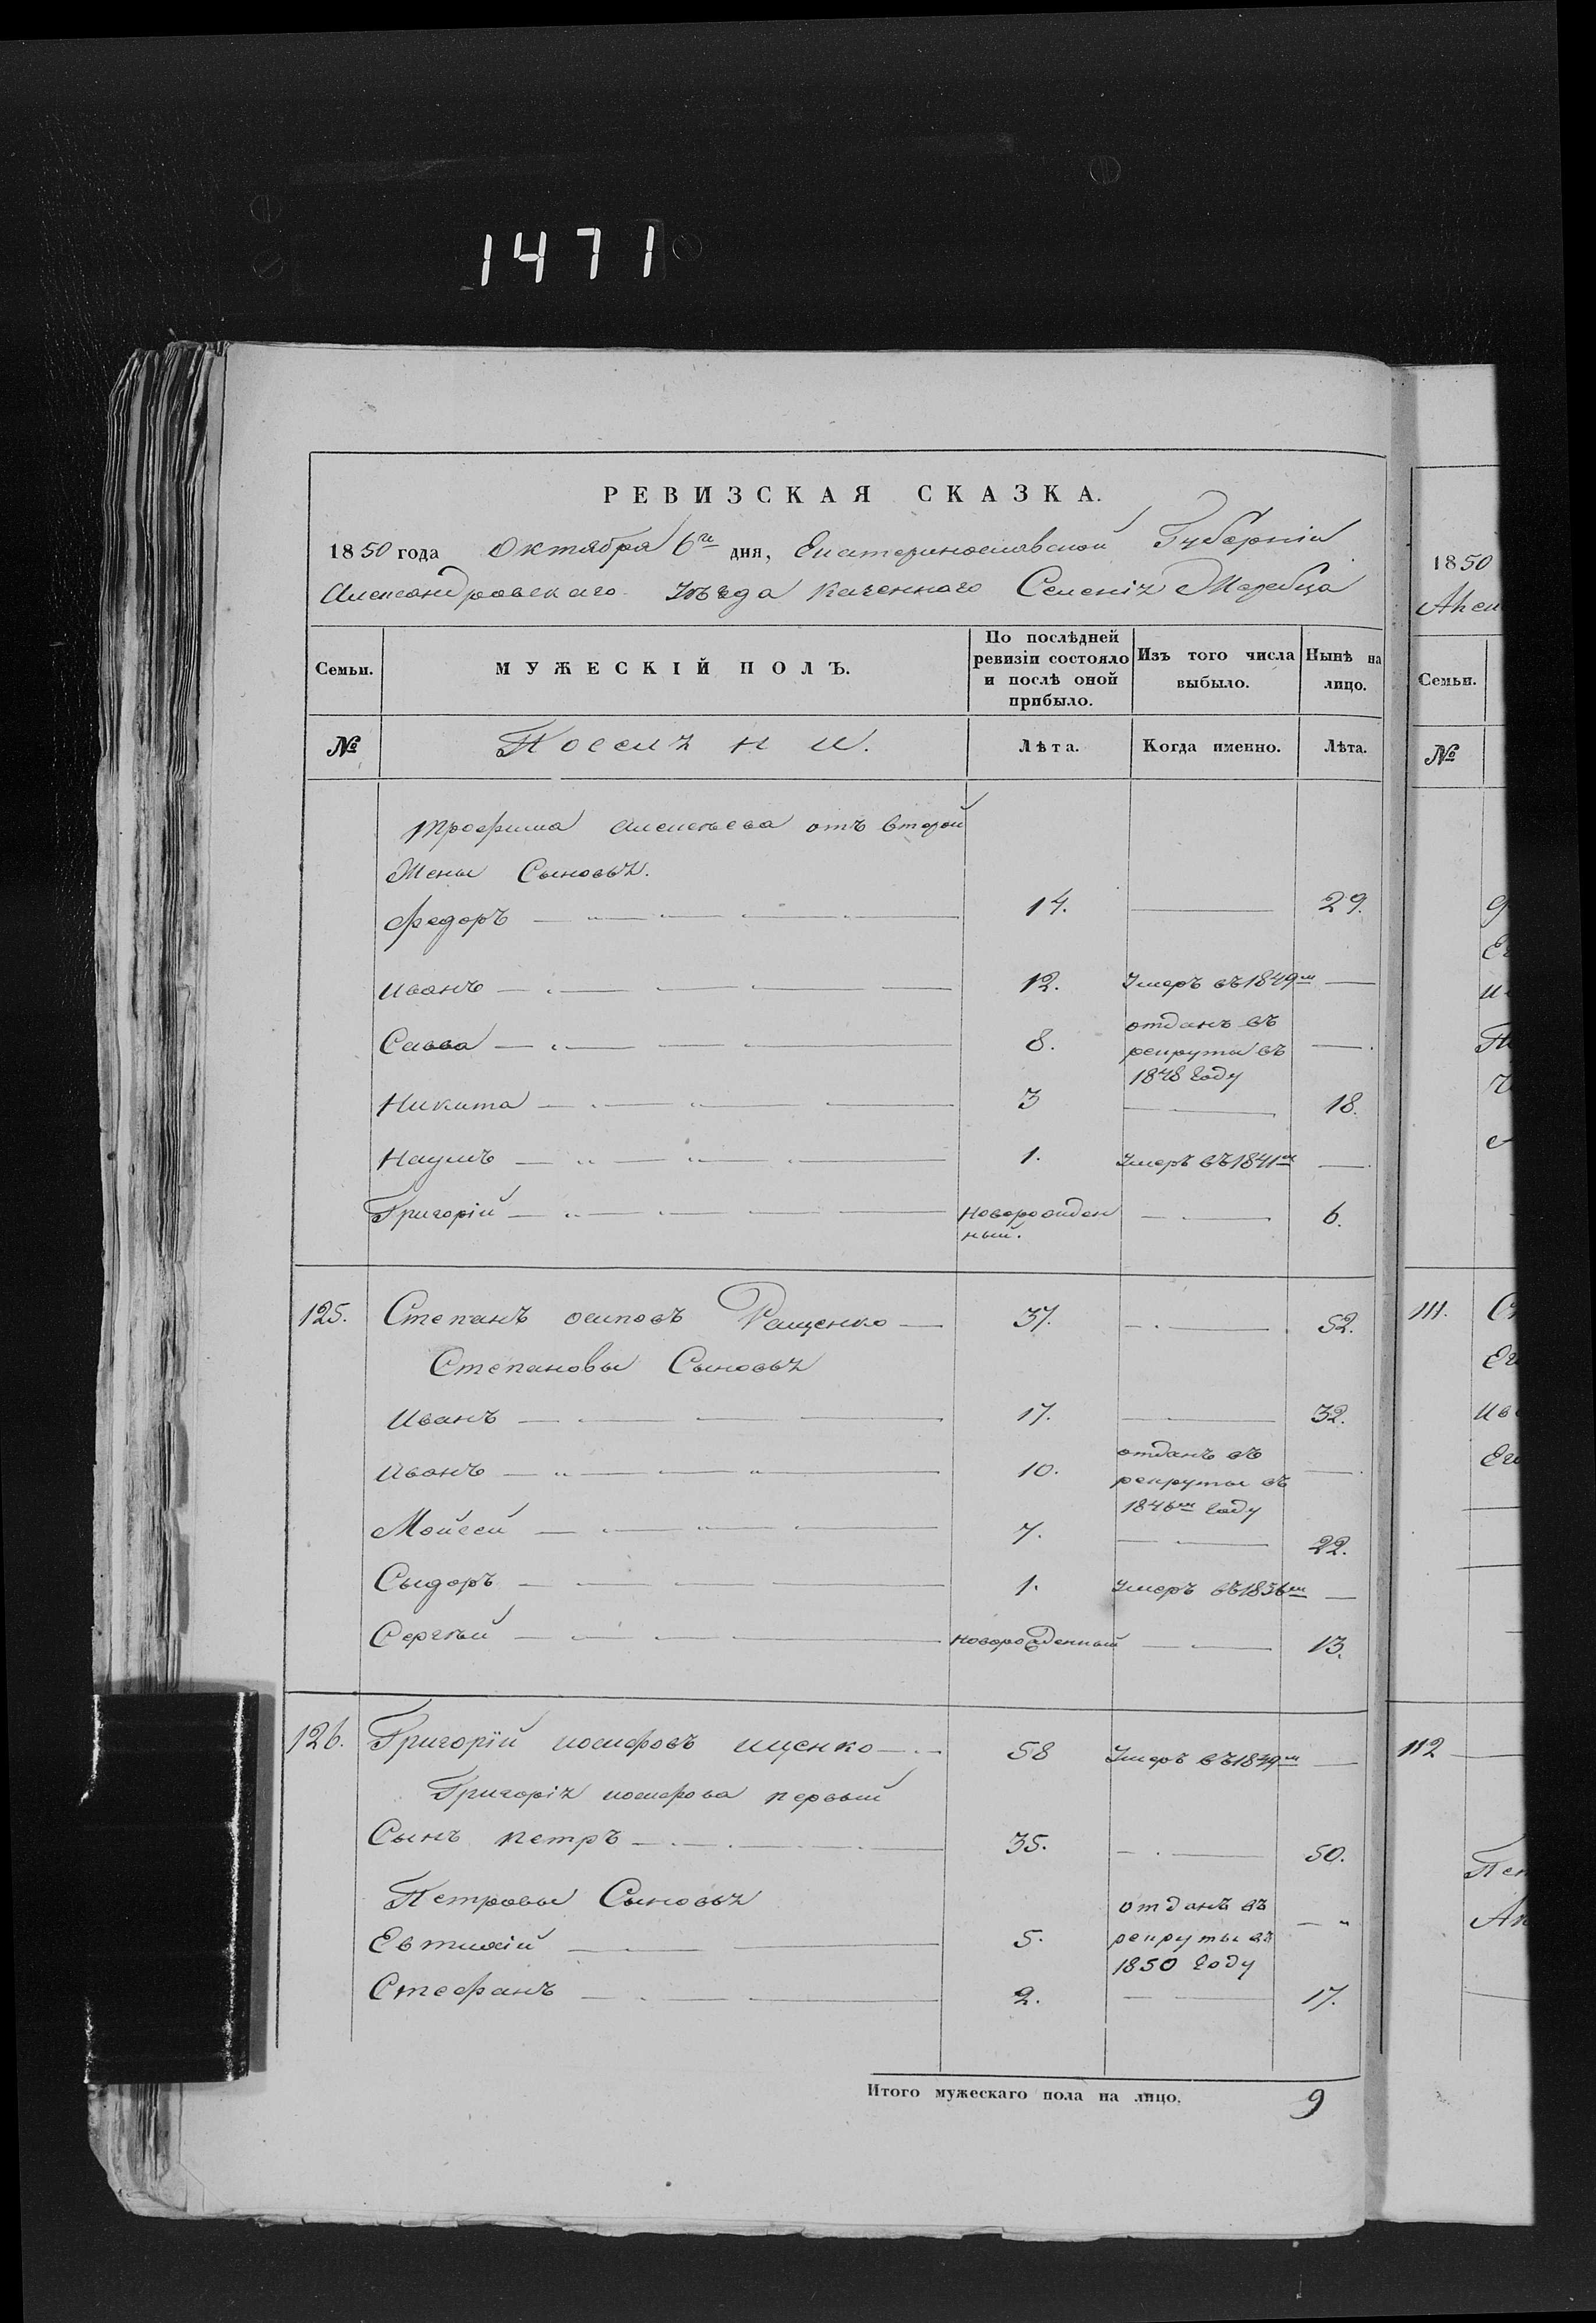 1471
РЕВИЗСКАЯ СКАЗКА.
1850 года Октября 6го дня, Екатеринославской Губерніи
Александровскаго уѣзда Казеннаго Селенія Жеребца
Семьи. МУЖЕСКІЙ ПОЛЪ. По послѣдней ревизіи состояло и послѣ оной прибыло. Изъ того числа выбыло. Нынѣ на лицо.
№ Поселя н и. Лѣта. Когда именно. Лѣта.
Трофима Алексѣева отъ второй
Жены Сыновья.
Федоръ 14. 29.
Иванъ 12. Умеръ въ 1849м
Савва 8. отданъ въ рекруты въ 1848 году
Никита 3 18.
Наумъ 1. Умеръ въ 1841м
Григорій новорожден ный. 6.
125. Степанъ осиповъ Ращенко 37. 52.
Степановы Сыновья
Иванъ 17. 32.
Иванъ 10. отданъ въ рекруты въ 1846м году
Мойсей 7. 22.
Сыдоръ 1. Умеръ въ 1836м
Сергѣй новорожденный 13.
126. Григорій иосифовъ ищенко 58 Умеръ въ 1849м
Григорія иосифова первый
Сынъ петръ 35. 50.
Петровы Сыновья
Евтихій 5. отданъ въ рекруты въ 1850 году
Стефанъ 2. 17.
Итого мужескаго пола на лицо. 9
1850
Семьи.
№
111.
112